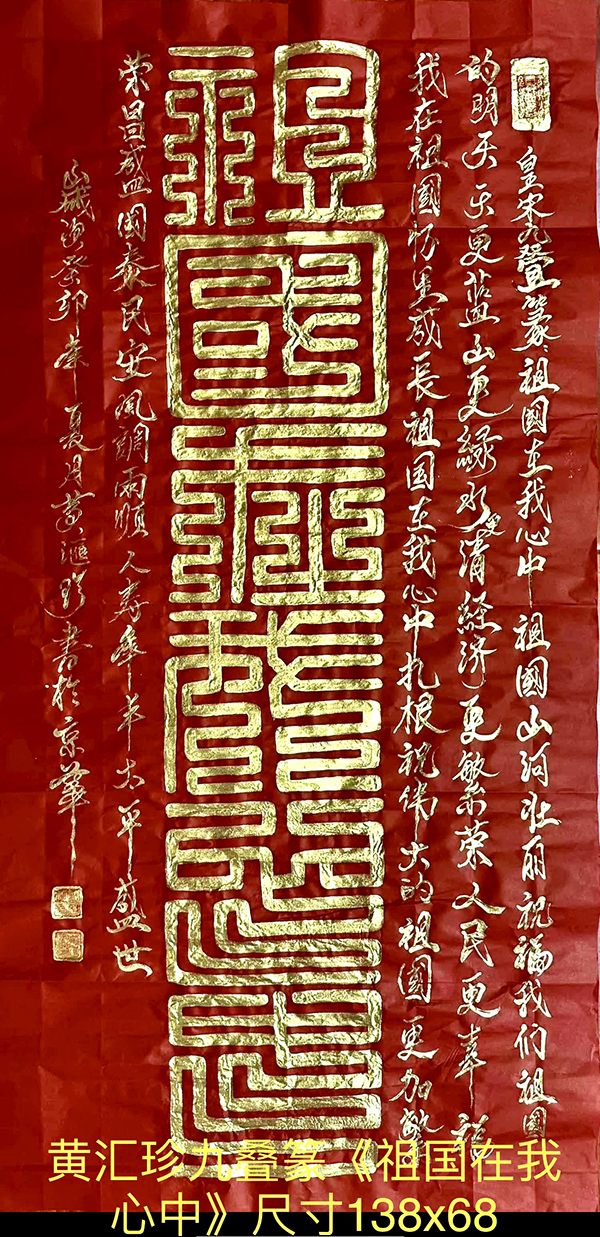 皇宋九叠篆祖國在我心中祖國山河壮丽祝福我们祖国
的明天天更蓝山更綠水更清經济更繁荣人民更幸福
我在祖國怀里成長祖国在我心中扎根祝伟大的祖國更加繁
祖國在我心中
荣昌盛国泰民安风調雨順人寿年丰太平盛世
癸卯年夏月黄滙珍書於京華
黄汇珍九叠篆《祖国在我
心中》尺寸138x68